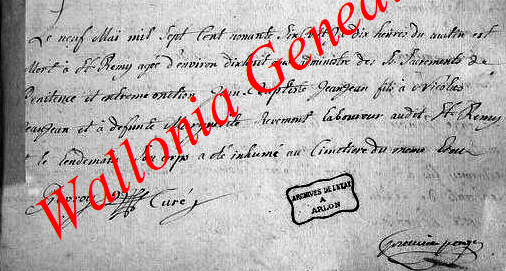 Le neuf Mai mil Sept Cent nonante Six vers dix heures du matin est
Mort à St Remy agé d'environ dixhuit ans administré des Sts Sacrements de
Penitence et extreme onction Jean Baptiste Jeanjean fils à Nicolas
Jeanjean et à defunte Marguerite Revemont laboureur audit St Remy
et le lendemain Son corps a été inhumé au Cimetiere du meme lieu
Curé
ARCHIVES DE L'ETAT
A
ARLON
Wallonia Genea